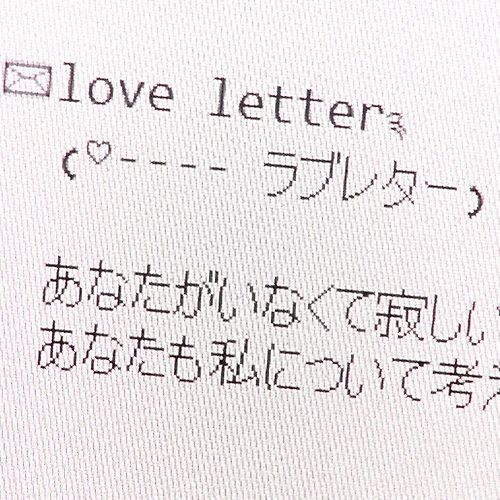 ✉love letter༉
(♡---- ラブレター)
あなたがいなくて寂しい
あなたも私について考え